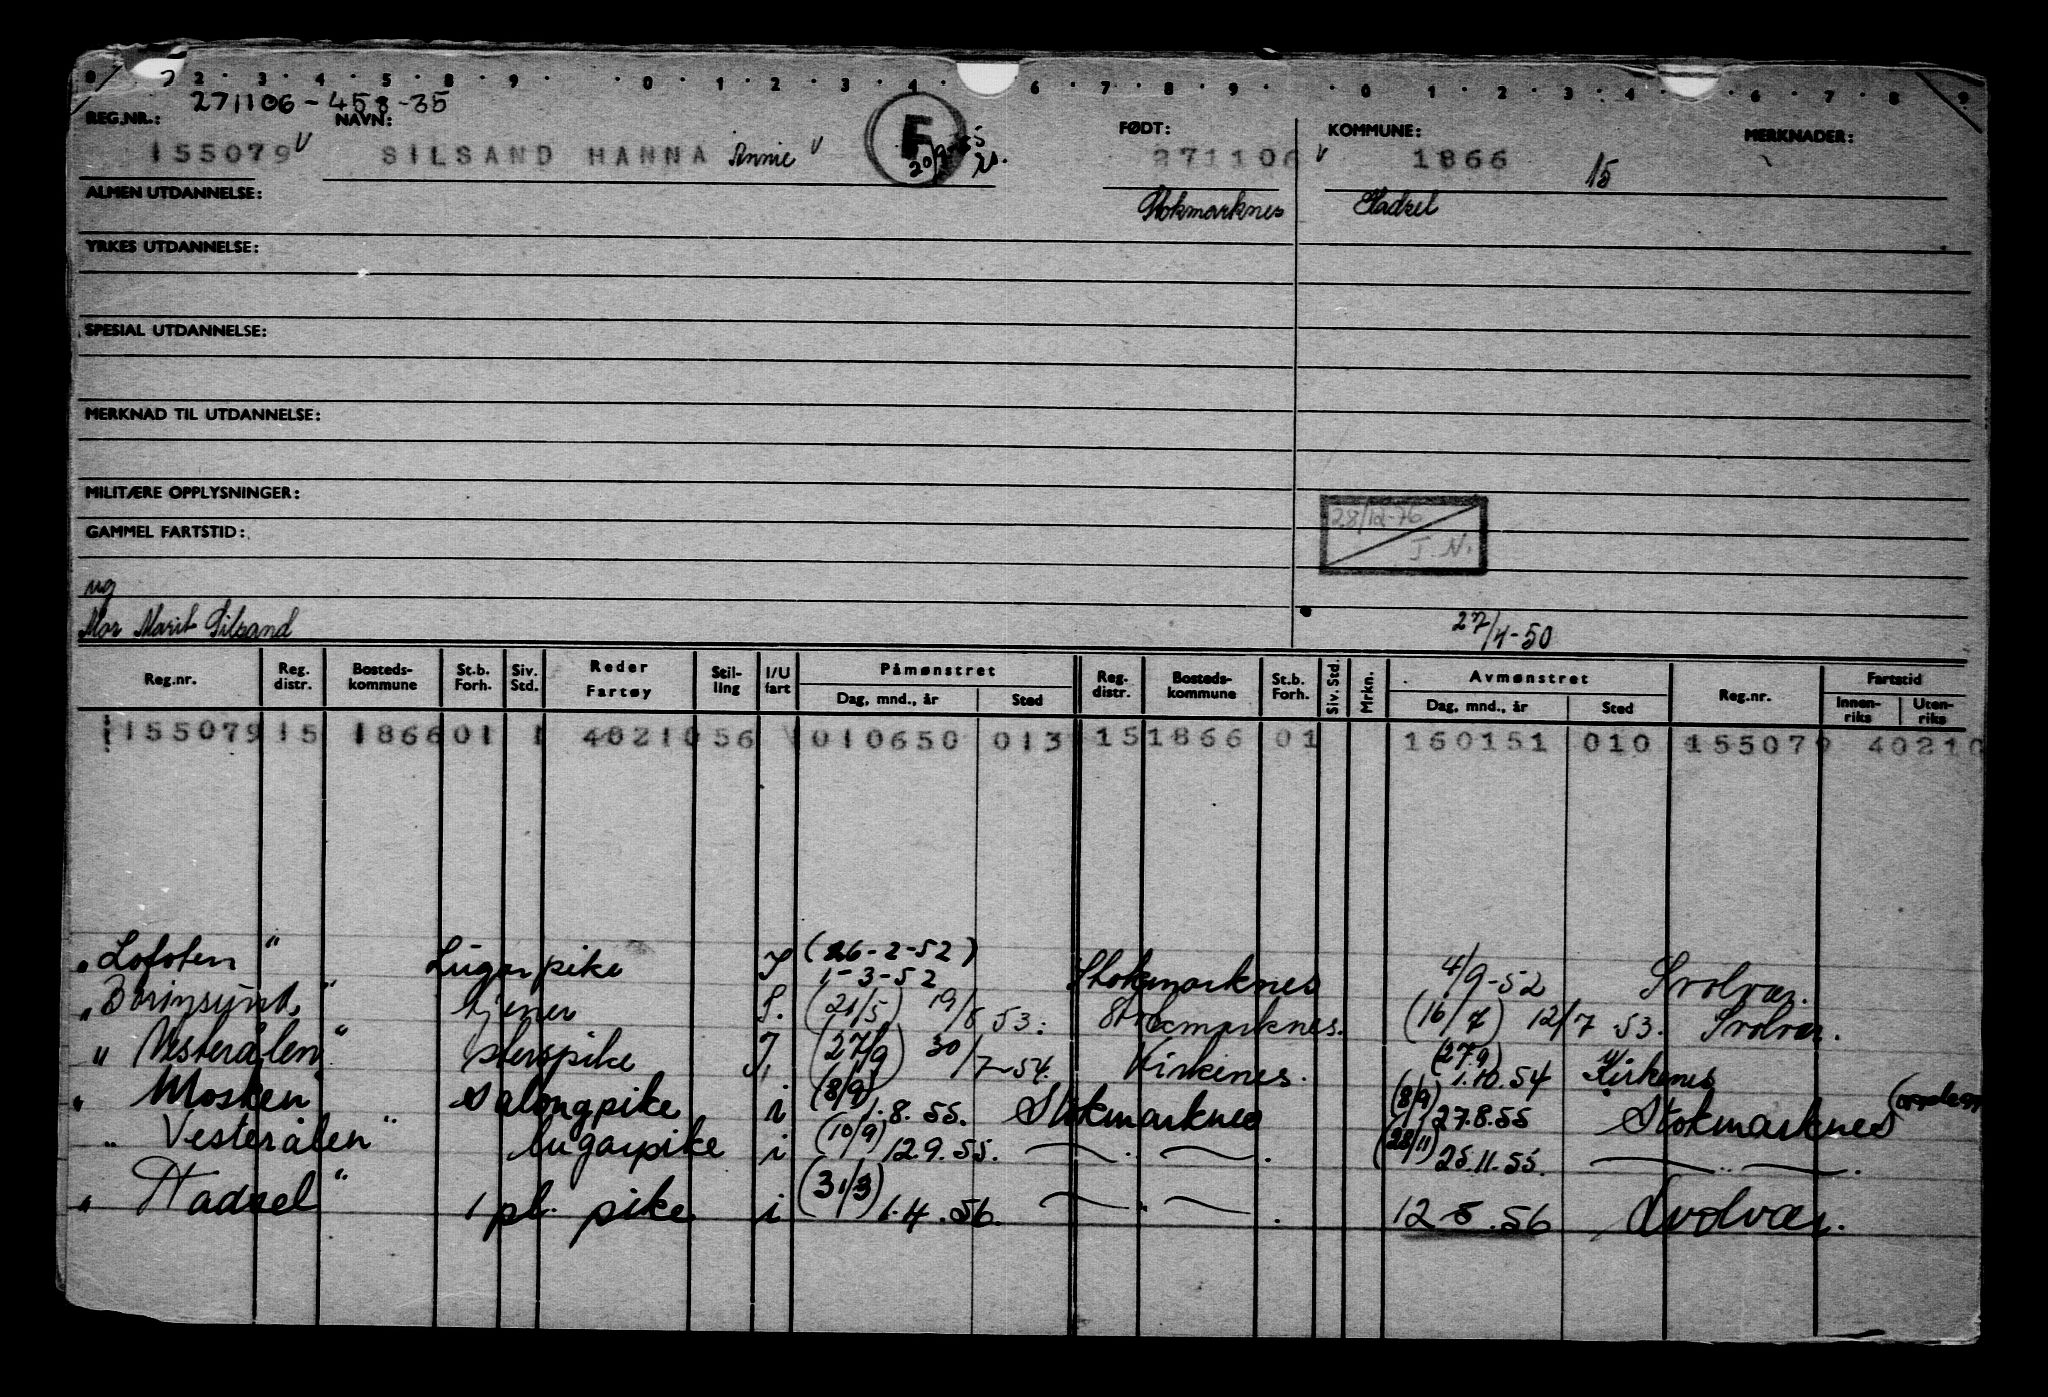 271106-458-35
REG.NR.: NAVN: FØDT: KOMMUNE: MERKNADER:
155079 SILSAND HANNA Annie F 271106 1866 15
ALMEN UTDANNELSE: Stokmarknes Hadsel
YRKES UTDANNELSE:
SPESIAL UTDANNELSE:
MERKNAD TIL UTDANNELSE:
MILITÆRE OPPLYSNINGER:
28/12-76
GAMMEL FARTSTID:
J. N.
ug
Mor Marit Silsand 27/4-50
Reg.nr. Reg. distr. Bosteds-kommune St.b. Forh. Siv. Std. Reder Fartøy Stil-ling I/U fart Påmønstret Dag, mnd., år Sted Reg. distr. Bosteds-kommune St.b. Forh. Siv. Std. Mrkn. Avmønstret Dag, mnd., år Sted Reg.nr. Fartstid Innen-riks Uten-riks
155079 15 1866 01 1 40210 56 010650 013 15 1866 01 160151 010 155079 40210
"Lofoten" Lugarpike I (26-2-52) 1-3-52 Stokmarknes 4/9-52 Svolvær.
" tjener I. (21/5) 19/6 53. Stokmarknes. (16/7) 12/7 53. Svolvær.
"Vesterålen" pike I. (27/9) 30/7-54. Kirkenes. (27.9) 1.10.54 Kirkenes
"Mosken" Salongpike i (8/9) 1.8.55. Stokmarknes (8/9) 27.8.55 Stokmarknes
"Vesterålen" lugarpike i (10/9) 12.9.55. — " — . (28/11) 25.11.55. — " — .
"Hadsel" 1 pl. pike i (31/3) 1.4.56. — " — . 12-5.56 Svolvær.